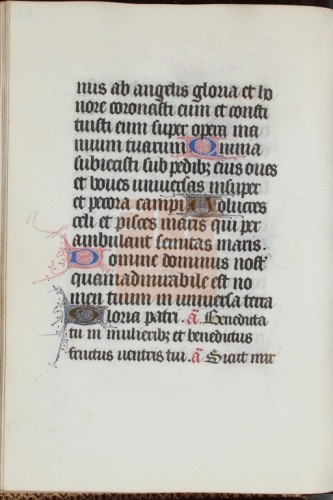 nus ab angelis gloria et ho
nore coronasti eum et consti
tuisti eum super opera ma
nuum tuarum Omnia
subiecisti sub pedibꝫ eius oues
et boues uniuersas insuper
et pecora campi Uolucres
celi et pisces maris qui per
ambulant semitas maris.
Domine dominus nost̾
quam admirabile est no
men tuum in uniuersa terra
Gloria patri. a̅ Benedicta
tu in mulieribꝫ et benedictus
fructus uentris tui. a̅ Sicut mir